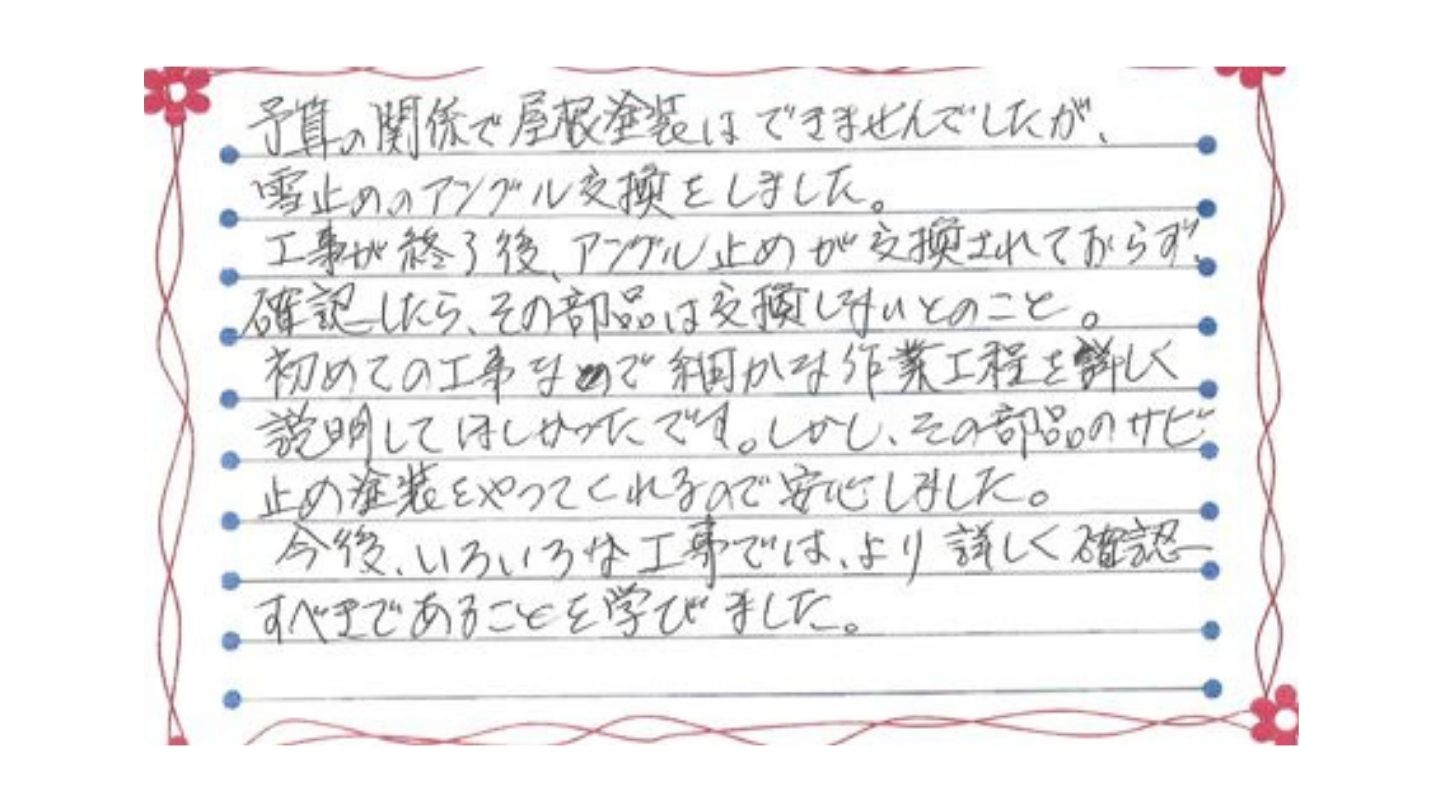 予算の関係で屋根塗装はできませんでしたが、
雪止めのアングル交換をしました。
工事が終了後、アングル止めが交換されておらず、
確認したら、その部品は交換しないとのこと。
初めての工事なので細かな作業工程を詳しく
説明してほしかったです。しかし、その部品のサビ
止め塗装をやってくれるので安心しました。
今後、いろいろな工事では、より詳しく確認
すべきであることを学びました。